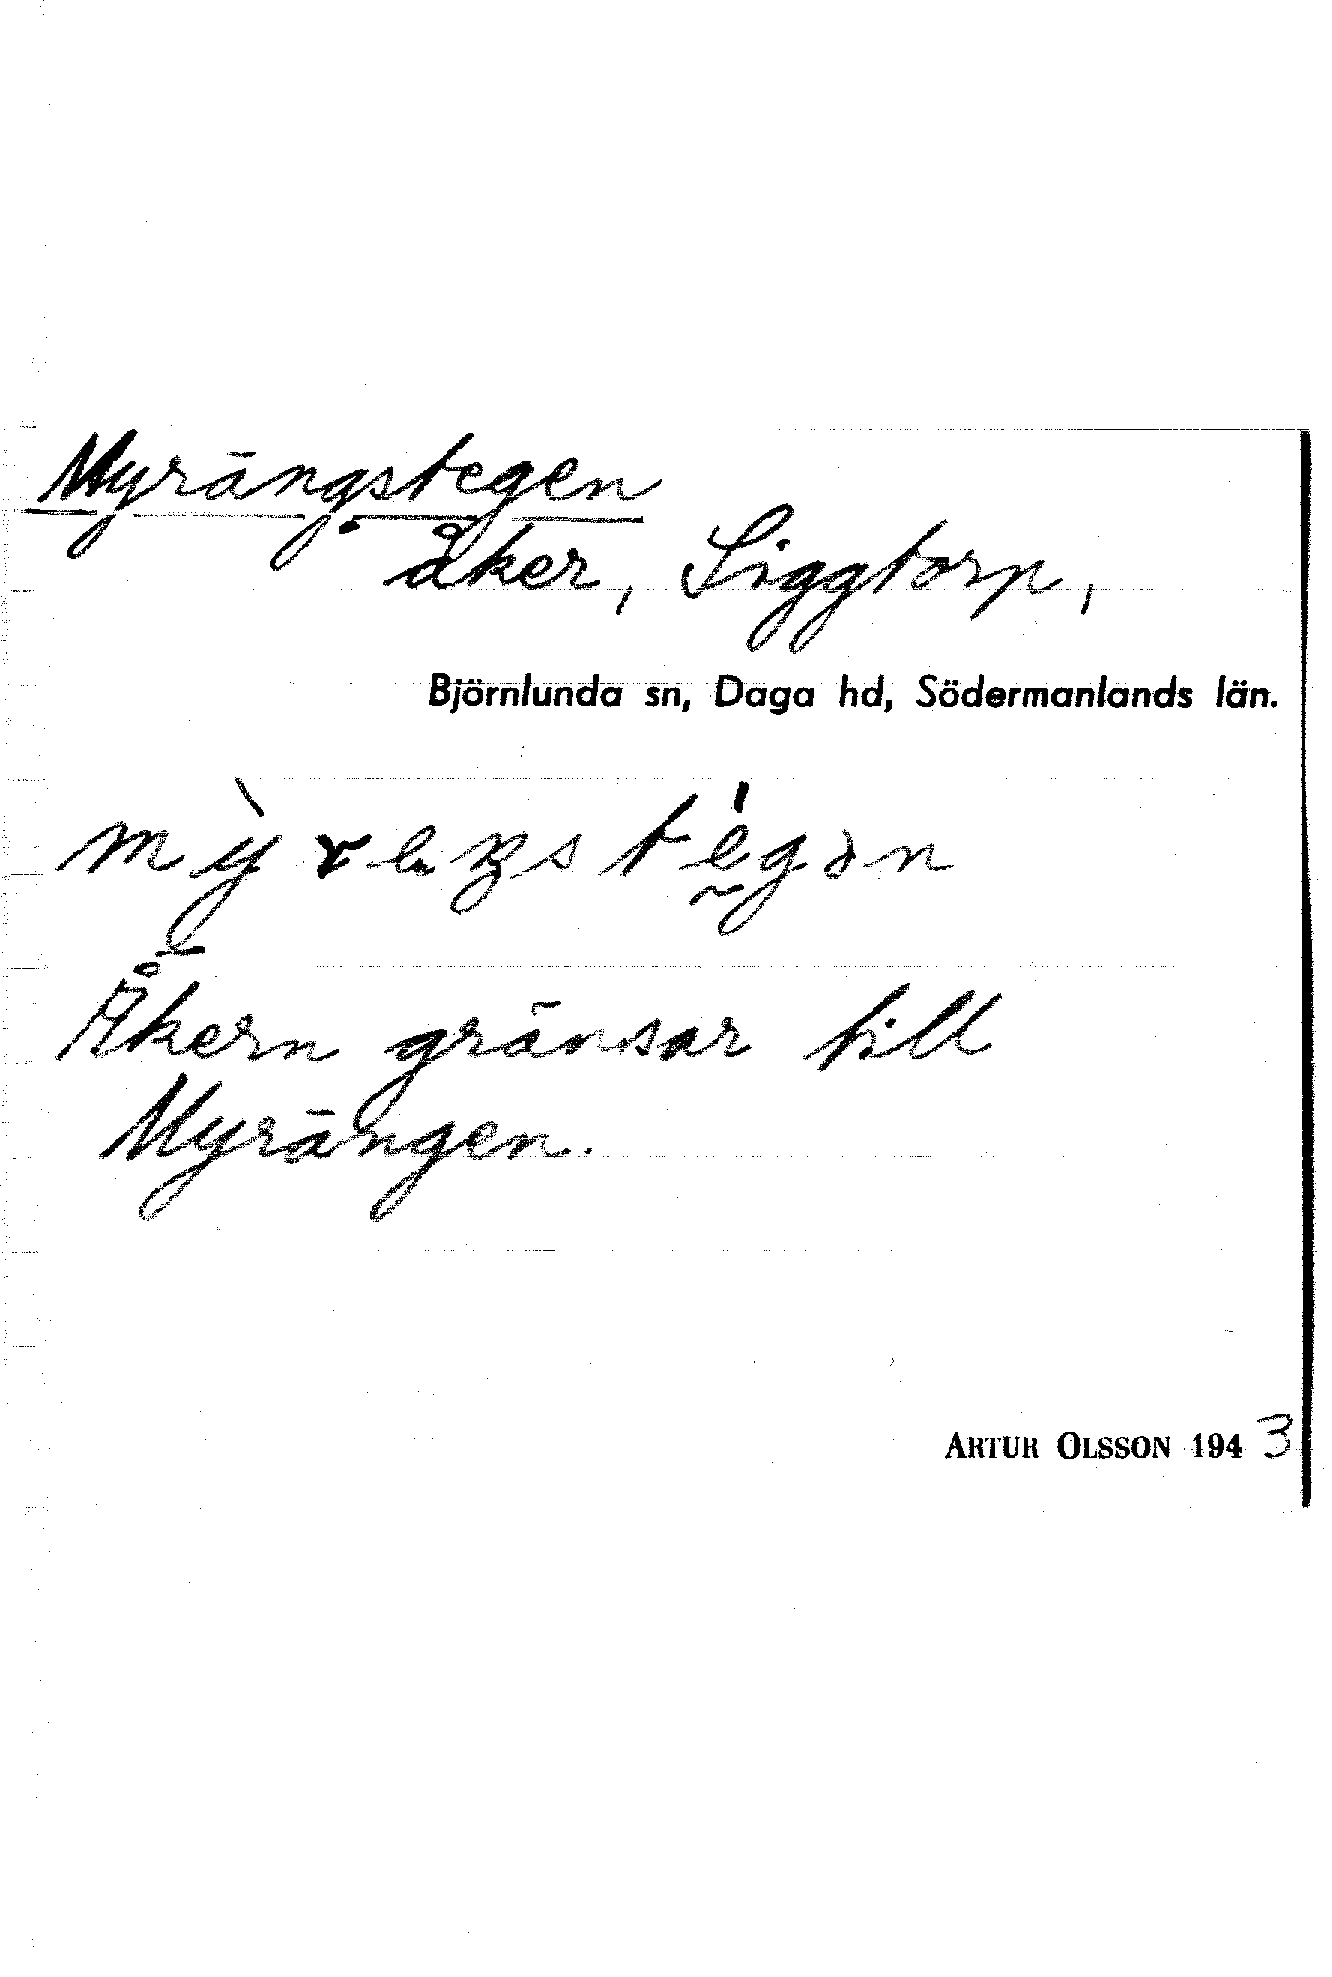 Myrängstegen
åker, Siggtorp,
Björnlunda sn, Daga hd, Södermanlands län.
Åkern gränsar till
Myrängen.
ARTUR OLSSON 1943